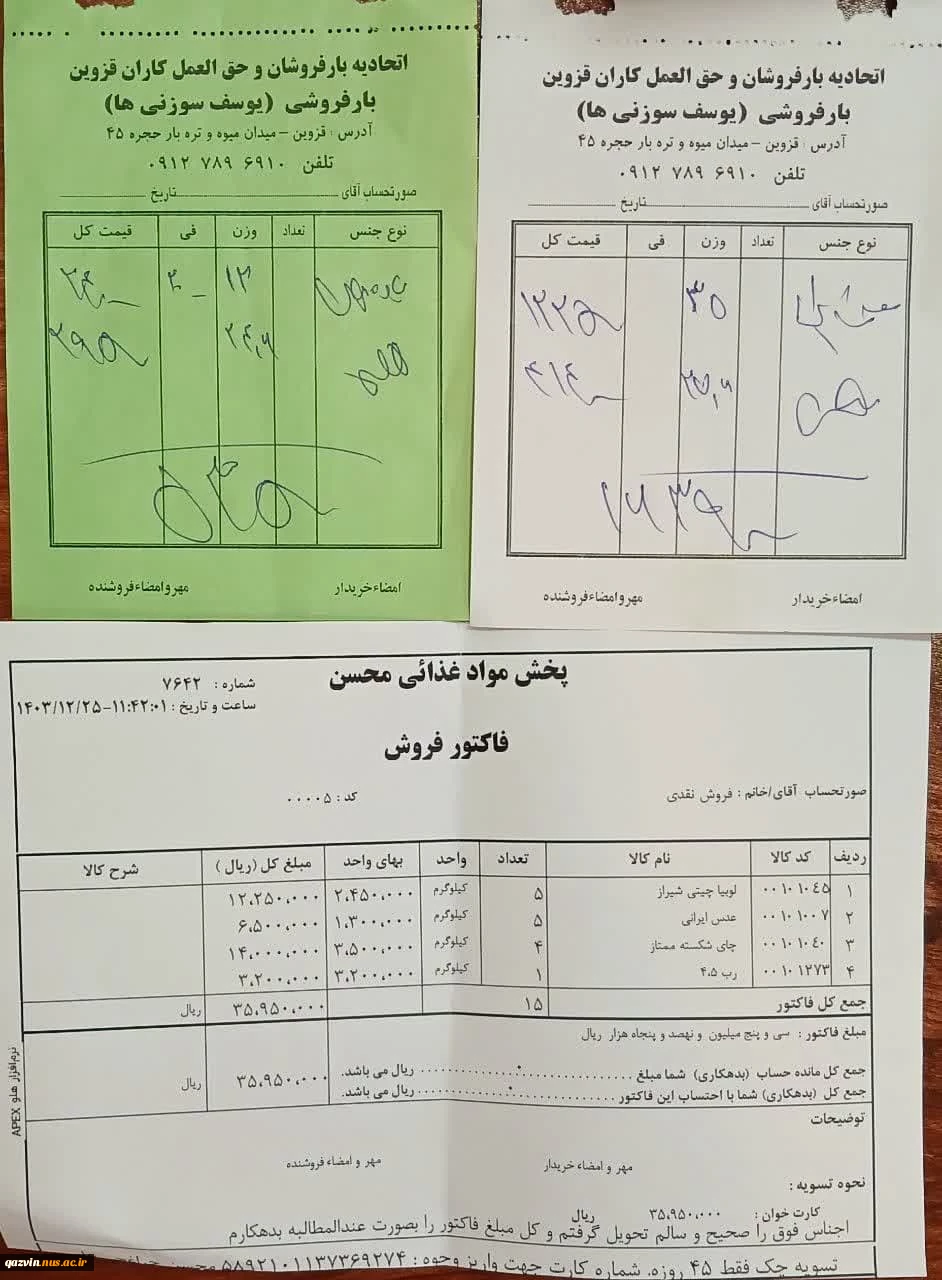 اتحادیه بارفروشان و حق العمل کاران قزوین
بارفروشی (یوسف سوزنی ها)
آدرس : قزوین – میدان میوه و تره بار حجره ۴۵
تلفن ۶۹۱۰ ۷۸۹ ۰۹۱۲
صورتحساب آقای تاریخ
نوع جنس تعداد وزن فی قیمت کل
۳۵ ۱۲۲۵
امضاء خریدار مهر و امضاء فروشنده
اتحادیه بارفروشان و حق العمل کاران قزوین
بارفروشی (یوسف سوزنی ها)
آدرس : قزوین – میدان میوه و تره بار حجره ۴۵
تلفن ۶۹۱۰ ۷۸۹ ۰۹۱۲
صورتحساب آقای تاریخ
نوع جنس تعداد وزن فی قیمت کل
۱۲
۲۹۵
امضاء خریدار مهر و امضاء فروشنده
پخش مواد غذائی محسن
شماره : ۷۶۴۲
ساعت و تاریخ : ۱۱:۴۲:۰۱-۱۴۰۳/۱۲/۲۵
فاکتور فروش
صورتحساب آقای/خانم : فروش نقدی کد : ۰۰۰۰۵
ردیف کد کالا نام کالا تعداد واحد بهای واحد مبلغ کل (ریال ) شرح کالا
۱ ۰۰۱۰۱۰۴۵ لوبیا چیتی شیراز ۵ کیلوگرم ۲،۴۵۰،۰۰۰ ۱۲،۲۵۰،۰۰۰
۲ ۰۰۱۰۱۰۰۷ عدس ایرانی ۵ کیلوگرم ۱،۳۰۰،۰۰۰ ۶،۵۰۰،۰۰۰
۳ ۰۰۱۰۱۰۴۰ چای شکسته ممتاز ۴ کیلوگرم ۳،۵۰۰،۰۰۰ ۱۴،۰۰۰،۰۰۰
۴ ۰۰۱۰۱۲۷۳ رب ۴،۵ ۱ کیلوگرم ۳،۲۰۰،۰۰۰ ۳،۲۰۰،۰۰۰
جمع کل فاکتور ۱۵ ۳۵،۹۵۰،۰۰۰ ریال
مبلغ فاکتور : سی و پنج میلیون و نهصد و پنجاه هزار ریال
جمع کل مانده حساب (بدهکاری) شما مبلغ ۰ ریال می باشد.
جمع کل (بدهکاری) شما با احتساب این فاکتور ۰ ریال می باشد.
۳۵،۹۵۰،۰۰۰ ریال
توضیحات
مهر و امضاء خریدار مهر و امضاء فروشنده
نحوه تسویه :
کارت خوان : ۳۵،۹۵۰،۰۰۰ ریال
اجناس فوق را صحیح و سالم تحویل گرفتم و کل مبلغ فاکتور را بصورت عندالمطالبه بدهکارم
تسویه چک فقط ۴۵ روزه. شماره کارت جهت واریز وجوه : ۵۸۹۲۱۰۱۱۳۷۳۶۹۲۷۴ محسن
نرم‌افزار هلو APEX
qazvin.nus.ac.ir